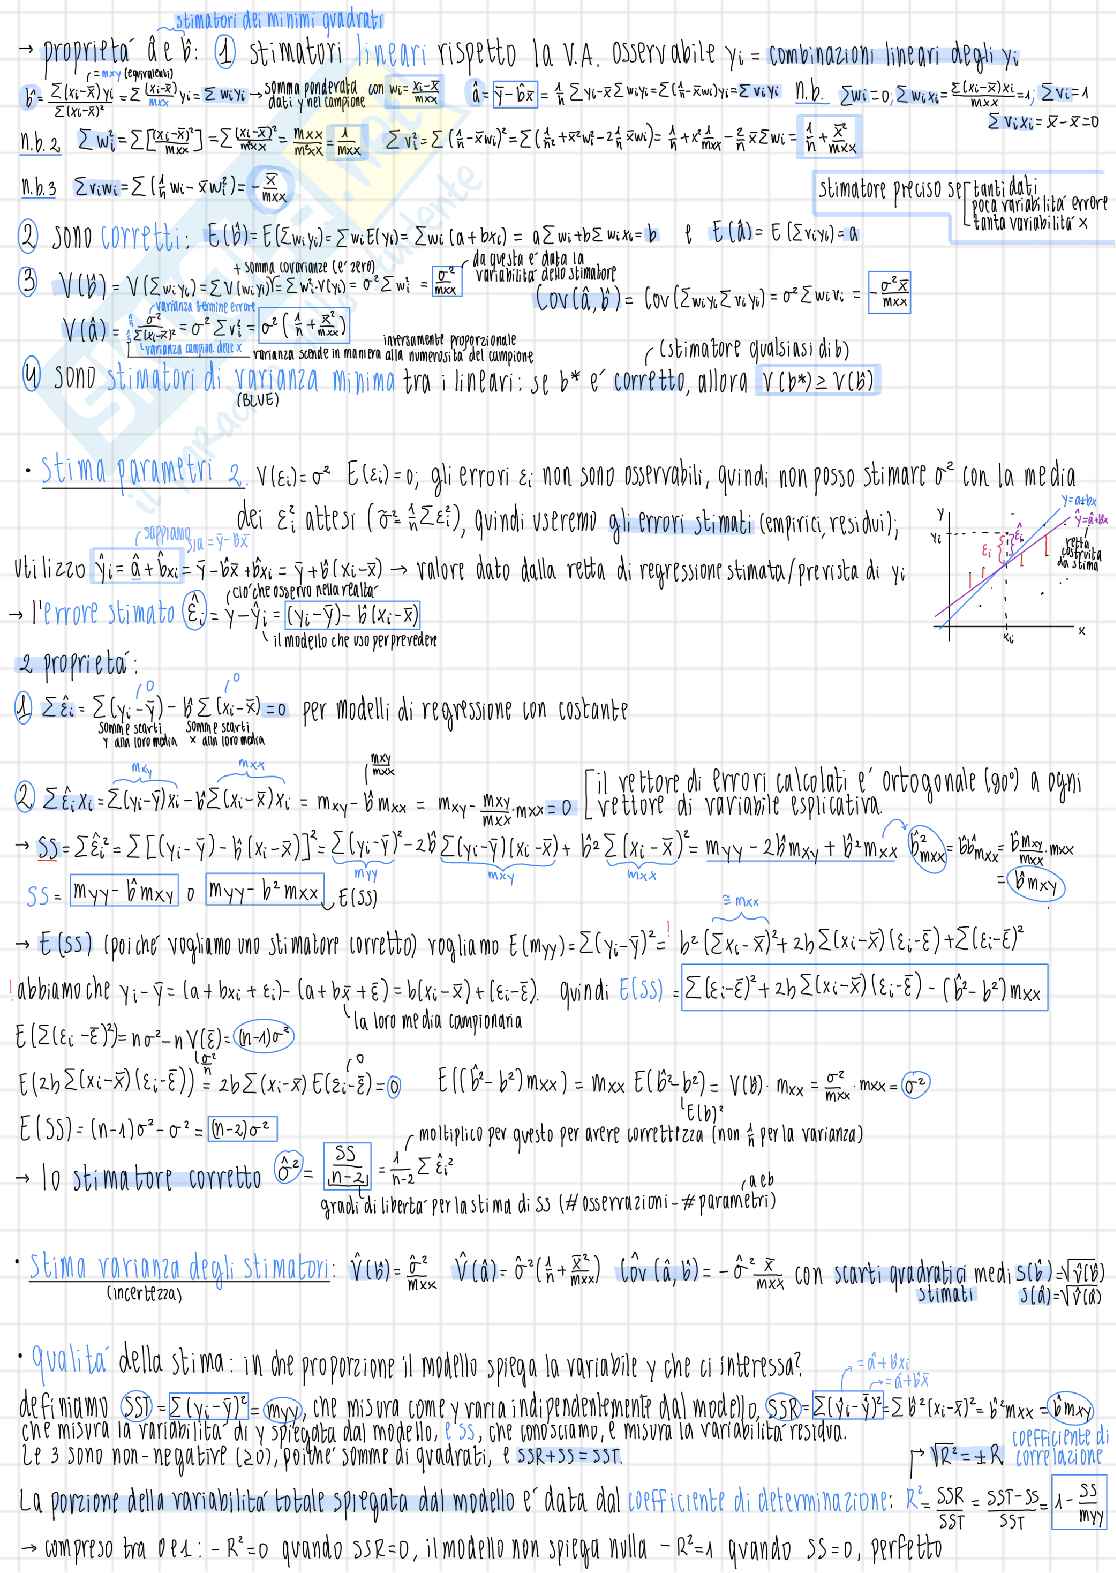 stimatori dei minimi quadrati
→ proprietá â e b̂: ① stimatori lineari rispetto la V.A. osservabile yᵢ = combinazioni lineari degli yᵢ
= mxy (equivalenti)
b̂ = Σ(xᵢ-x̄)yᵢ / Σ(xᵢ-x̄)² = Σ (xᵢ-x̄)/mxx yᵢ = Σ wᵢyᵢ → somma ponderata dati y nel campione con wᵢ = (xᵢ-x̄)/mxx â = ȳ-b̂x̄ = 1/n Σyᵢ - x̄Σwᵢyᵢ = Σ(1/n - x̄wᵢ)yᵢ = Σvᵢyᵢ n.b. Σwᵢ=0, Σwᵢxᵢ = Σ(xᵢ-x̄)xᵢ/mxx = 1, Σvᵢ=1
Σvᵢxᵢ = x̄-x̄ = 0
n.b.2 Σwᵢ² = Σ[(xᵢ-x̄)²/mxx] = Σ(xᵢ-x̄)²/m²xx = mxx/m²xx = 1/mxx Σvᵢ² = Σ(1/n - x̄wᵢ)² = Σ(1/n² + x̄²wᵢ² - 2 1/n x̄wᵢ) = 1/n + x̄² 1/mxx - 2/n x̄Σwᵢ = 1/n + x̄²/mxx
n.b.3 Σvᵢwᵢ = Σ(1/n wᵢ - x̄wᵢ²) = - x̄/mxx
stimatore preciso se [ tanti dati
poca variabilitá errore
tanta variabilitá x
② sono corretti: E(b̂) = E(Σwᵢyᵢ) = ΣwᵢE(yᵢ) = Σwᵢ(a+bxᵢ) = aΣwᵢ + bΣwᵢxᵢ = b e E(â) = E(Σvᵢyᵢ) = a
+ somma covarianze (e' zero)
③ V(b̂) = V(Σwᵢyᵢ) = ΣV(wᵢyᵢ) = Σwᵢ²·V(yᵢ) = σ²Σwᵢ² = σ²/mxx
da questa e' data la variabilitá dello stimatore
Cov(â,b̂) = Cov(Σwᵢyᵢ Σvᵢyᵢ) = σ²Σwᵢvᵢ = - σ²x̄/mxx
varianza termine errore
V(â) = σ²/Σ(xᵢ-x̄)² = σ²Σvᵢ² = σ²(1/n + x̄²/mxx)
varianza campion. delle x
varianza scende in maniera inversamente proporzionale alla numerositá del campione
(stimatore qualsiasi di b)
④ sono stimatori di varianza minima tra i lineari: se b* e' corretto, allora V(b*) ≥ V(b̂)
(BLUE)
• stima parametri 2. V(εᵢ)=σ² E(εᵢ)=0; gli errori εᵢ non sono osservabili, quindi non posso stimare σ² con la media
dei εᵢ² attesi (σ̃² = 1/n Σεᵢ²), quindi useremo gli errori stimati (empirici, residui);
sappiamo
sia = ȳ-b̂x̄
utilizzo ŷᵢ = â+b̂xᵢ = ȳ-b̂x̄+b̂xᵢ = ȳ+b̂(xᵢ-x̄) → valore dato dalla retta di regressione stimata/prevista di yᵢ
y=a+bx
ŷ=â+b̂x
retta costruita da stima
y
yᵢ
εᵢ
ε̂ᵢ
xᵢ
x
ciò che osservo nella realtá
→ l'errore stimato ε̂ᵢ = y-ŷᵢ = (yᵢ-ȳ) - b̂(xᵢ-x̄)
il modello che uso per prevedere
2 proprietá:
① Σε̂ᵢ = Σ(yᵢ-ȳ) - b̂Σ(xᵢ-x̄) = 0 per modelli di regressione con costante
0
0
somme scarti y alla loro media
somme scarti x alla loro media
mxy
mxx
mxy/mxx
② Σε̂ᵢxᵢ = Σ(yᵢ-ȳ)xᵢ - b̂Σ(xᵢ-x̄)xᵢ = mxy - b̂mxx = mxy - mxy/mxx · mxx = 0 [ il vettore di errori calcolati e' ortogonale (90°) a ogni
vettore di variabile esplicativa.
→ SS = Σε̂ᵢ² = Σ[(yᵢ-ȳ) - b̂(xᵢ-x̄)]² = Σ(yᵢ-ȳ)² - 2b̂Σ(yᵢ-ȳ)(xᵢ-x̄) + b̂²Σ(xᵢ-x̄)² = myy - 2b̂mxy + b̂²mxx b̂²mxx = b̂b̂mxx = b̂ mxy/mxx · mxx
= b̂mxy
myy
mxy
mxx
SS = myy - b̂mxy o myy - b²mxx → E(SS)
≅ mxx
→ E(SS) (poiché vogliamo uno stimatore corretto) vogliamo E(myy) = Σ(yᵢ-ȳ)² =! b²(Σxᵢ-x̄)² + 2bΣ(xᵢ-x̄)(εᵢ-ε̄) + Σ(εᵢ-ε̄)²
! abbiamo che yᵢ-ȳ = (a+bxᵢ+εᵢ) - (a+bx̄+ε̄) = b(xᵢ-x̄)+(εᵢ-ε̄). quindi E(SS) = Σ(εᵢ-ε̄)² + 2bΣ(xᵢ-x̄)(εᵢ-ε̄) - (b̂²-b²)mxx
la loro media campionaria
E(Σ(εᵢ-ε̄)²) = nσ² - nV(ε̄) = (n-1)σ²
σ²/n
E(2bΣ(xᵢ-x̄)(εᵢ-ε̄)) = 2bΣ(xᵢ-x̄)E(εᵢ-ε̄) = 0 E((b̂²-b²)mxx) = mxx E(b̂²-b²) = V(b̂)·mxx = σ²/mxx · mxx = σ²
0
E(b)²
E(SS) = (n-1)σ² - σ² = (n-2)σ²
moltiplico per questo per avere correttezza (non 1/n per la varianza)
→ lo stimatore corretto σ̂² = SS/(n-2) = 1/(n-2) Σε̂ᵢ²
a e b
gradi di libertá per la stima di SS (# osservazioni - # parametri)
• stima varianza degli stimatori: V̂(b̂) = σ̂²/mxx V̂(â) = σ̂²(1/n + x̄²/mxx) Côv(â,b̂) = -σ̂² x̄/mxx con scarti quadratici medi s(b̂)=√V̂(b̂)
(incertezza)
stimati s(â)=√V̂(â)
• qualitá della stima: in che proporzione il modello spiega la variabile y che ci interessa?
= â+b̂xᵢ
= â+b̂x̄
definiamo SST = Σ(yᵢ-ȳ)² = myy, che misura come y varia indipendentemente dal modello, SSR = Σ(ŷᵢ-ȳ)² = Σb̂²(xᵢ-x̄)² = b̂²mxx = b̂mxy
che misura la variabilitá di y spiegata dal modello, e SS, che conosciamo, e misura la variabilitá residua.
Le 3 sono non-negative (≥0), poiché somme di quadrati, e SSR+SS=SST.
√R² = ±R coefficiente di correlazione
La porzione della variabilitá totale spiegata dal modello e' data dal coefficiente di determinazione: R² = SSR/SST = (SST-SS)/SST = 1 - SS/myy
→ compreso tra 0 e 1: - R²=0 quando SSR=0, il modello non spiega nulla - R²=1 quando SS=0, perfetto